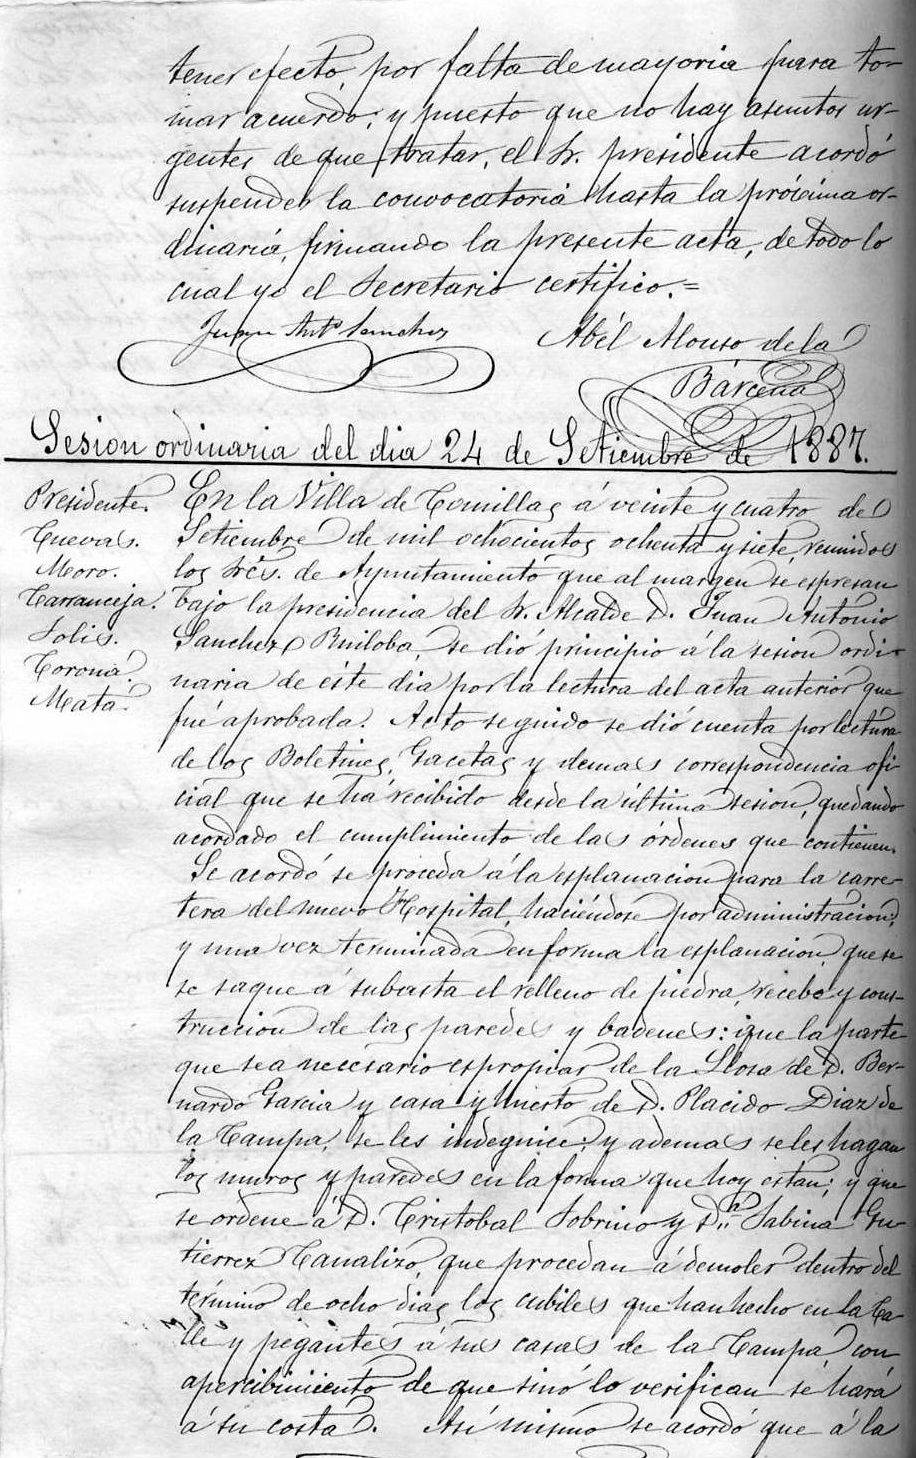 tener efecto, por falta de mayoria para to-
mar acuerdo; y puesto que no hay asuntos ur-
gentes de que tratar, el Sr. presidente acordó
suspender la convocatoria hasta la próxima or-
dinaria, firmando la presente acta, de todo lo
cual yo el Secretario certifico.=
Juan Ant.º Sanchez
Abél Alonso de la
Bárcena
Sesion ordinaria del dia 24 de Setiembre de 1887.
Presidente.
Cuevas.
Moro.
Carranceja.
Solis.
Corona.
Mata.
En la Villa de Comillas á veinte y cuatro de
Setiembre de mil ochocientos ochenta y siete, reunidos
los Srés. de Ayuntamiento que al margen se espresan
bajo la presidencia del Sr. Alcalde D. Juan Antonio
Sanchez Ruiloba, se dió principio á la sesion ordi-
naria de éste dia por la lectura del acta anterior que
fué aprobada. Acto seguido se dió cuenta por lectura
de los Boletines, Gacetas y demas correspondencia ofi-
cial que se há recibido desde la última sesion, quedando
acordado el cumplimiento de las órdenes que contienen.
Se acordó se proceda á la esplanacion para la carre-
tera del nuevo Hospital, haciéndose por administracion,
y una vez terminada en forma la esplanacion, que se
se saque á subasta el relleno de piedra, recebo y cons-
truccion de las paredes y badenes: que la parte
que sea necesario espropiar de la Llosa de D. Ber-
nardo Garcia y casa y huerto de D. Placido Diaz de
la Campa, se les indegnice; y ademas se les hagan
los muros y paredes en la forma que hoy estan; y que
se ordene á D. Cristobal Sobrino y D.ª Sabina Gu-
tierrez Canalizo, que procedan á demoler dentro del
término de ocho dias los cubiles que han hecho en la Ca-
lle y pegantes á sus casas de la Campa, con
apercibimiento de que sinó lo verifican se hará
á su costa. Así mismo se acordó que á la